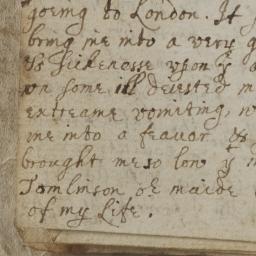 goeing to London. It
bring me into a very g
ys sickenesse upon ye a
on some ill dejested m
extreame vomiting, w
me into a feavor ys
brought me so low yt m
Tomlinson or maide
of my Life.